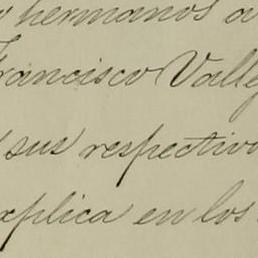 y hermanos a
Francisco Valle
sus respectivo
explica en los